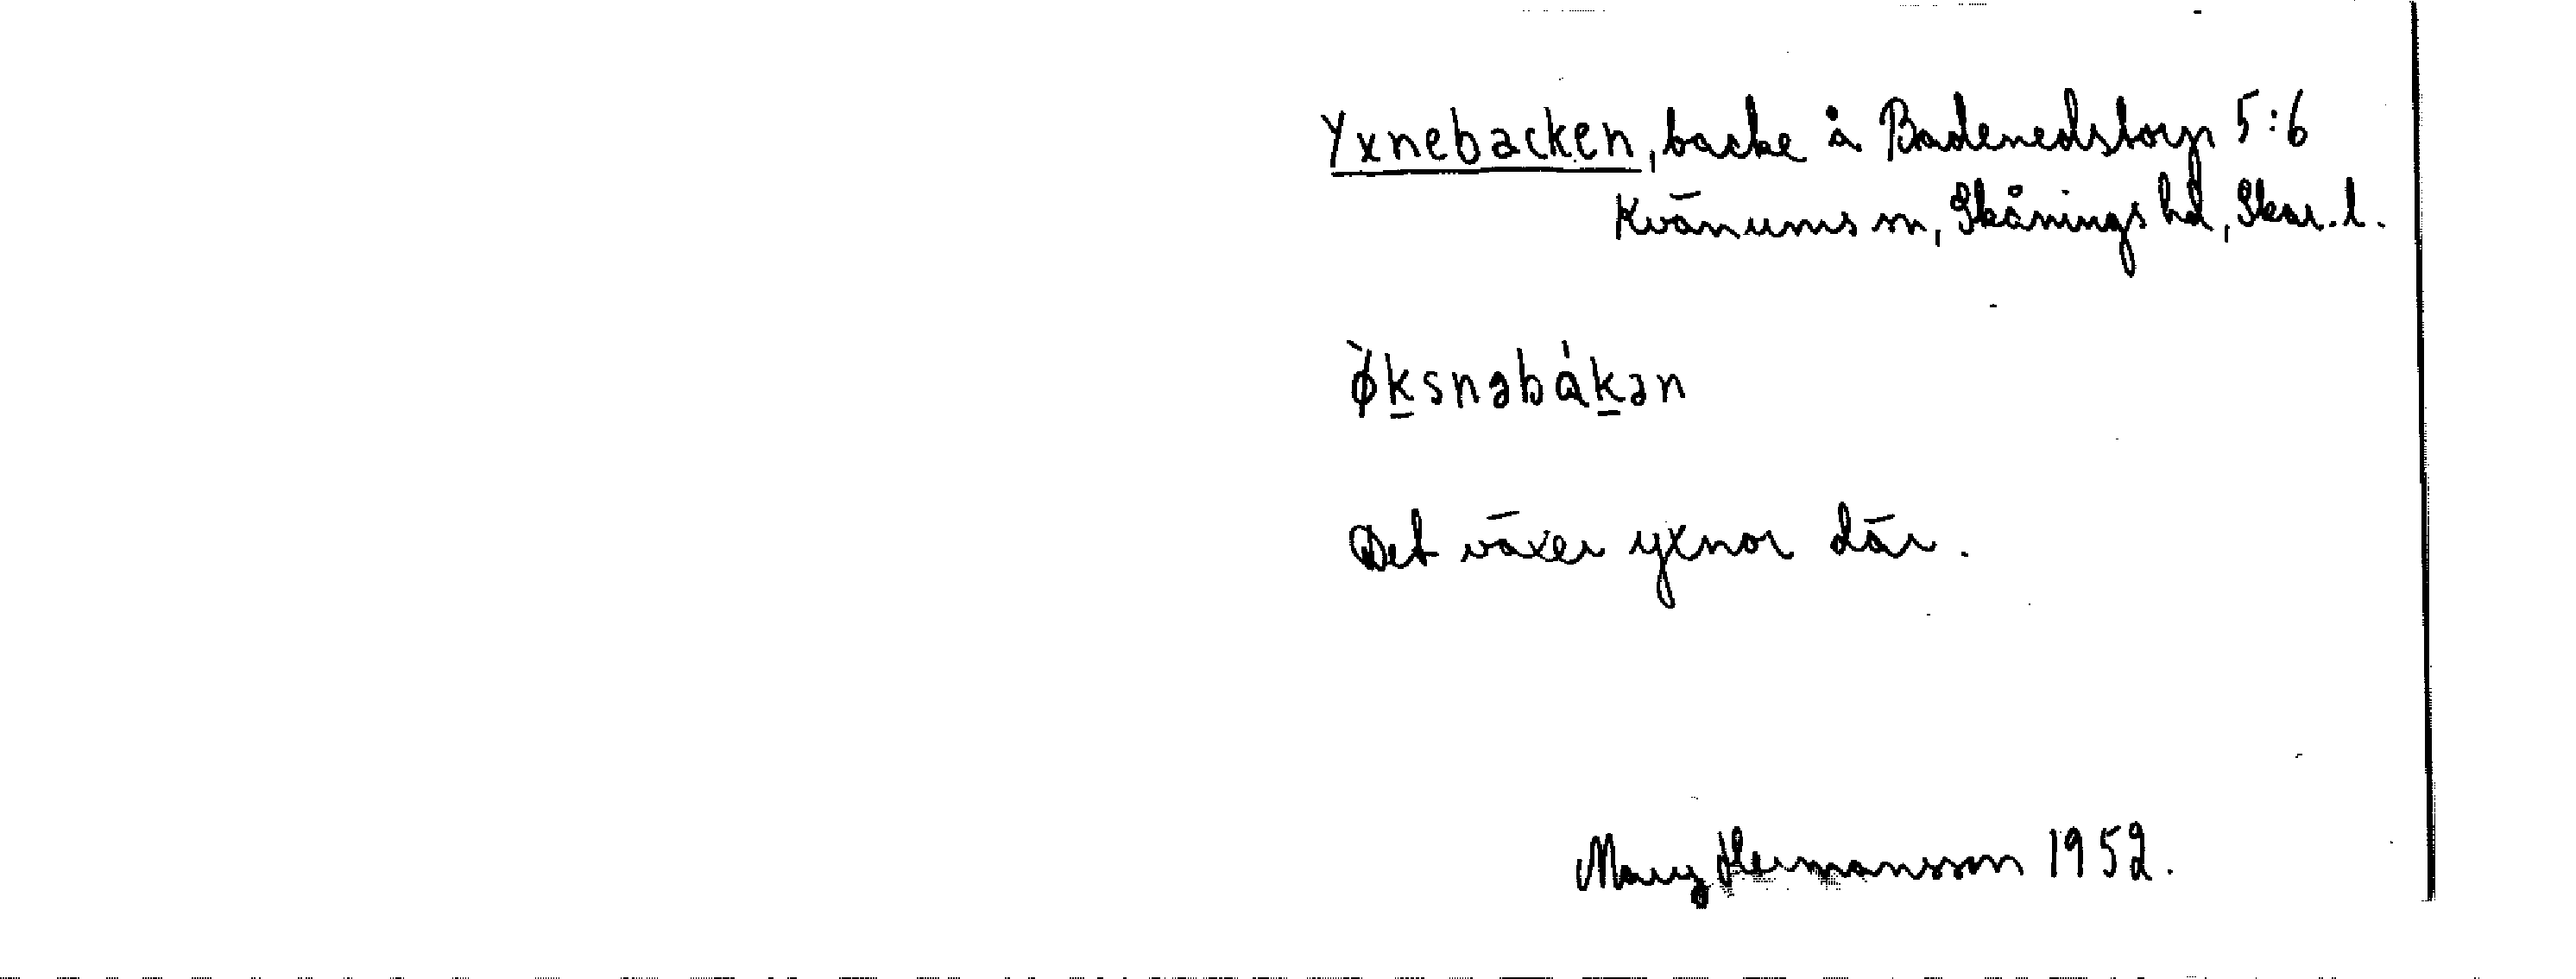 Yxnebacken, backe å Badenedsborg 5:6
Kvänums sn, Skånings hd, Skar. l.
ø̀ksnəbákən
Det växer yxnor där.
Mary Hermansson 1952.